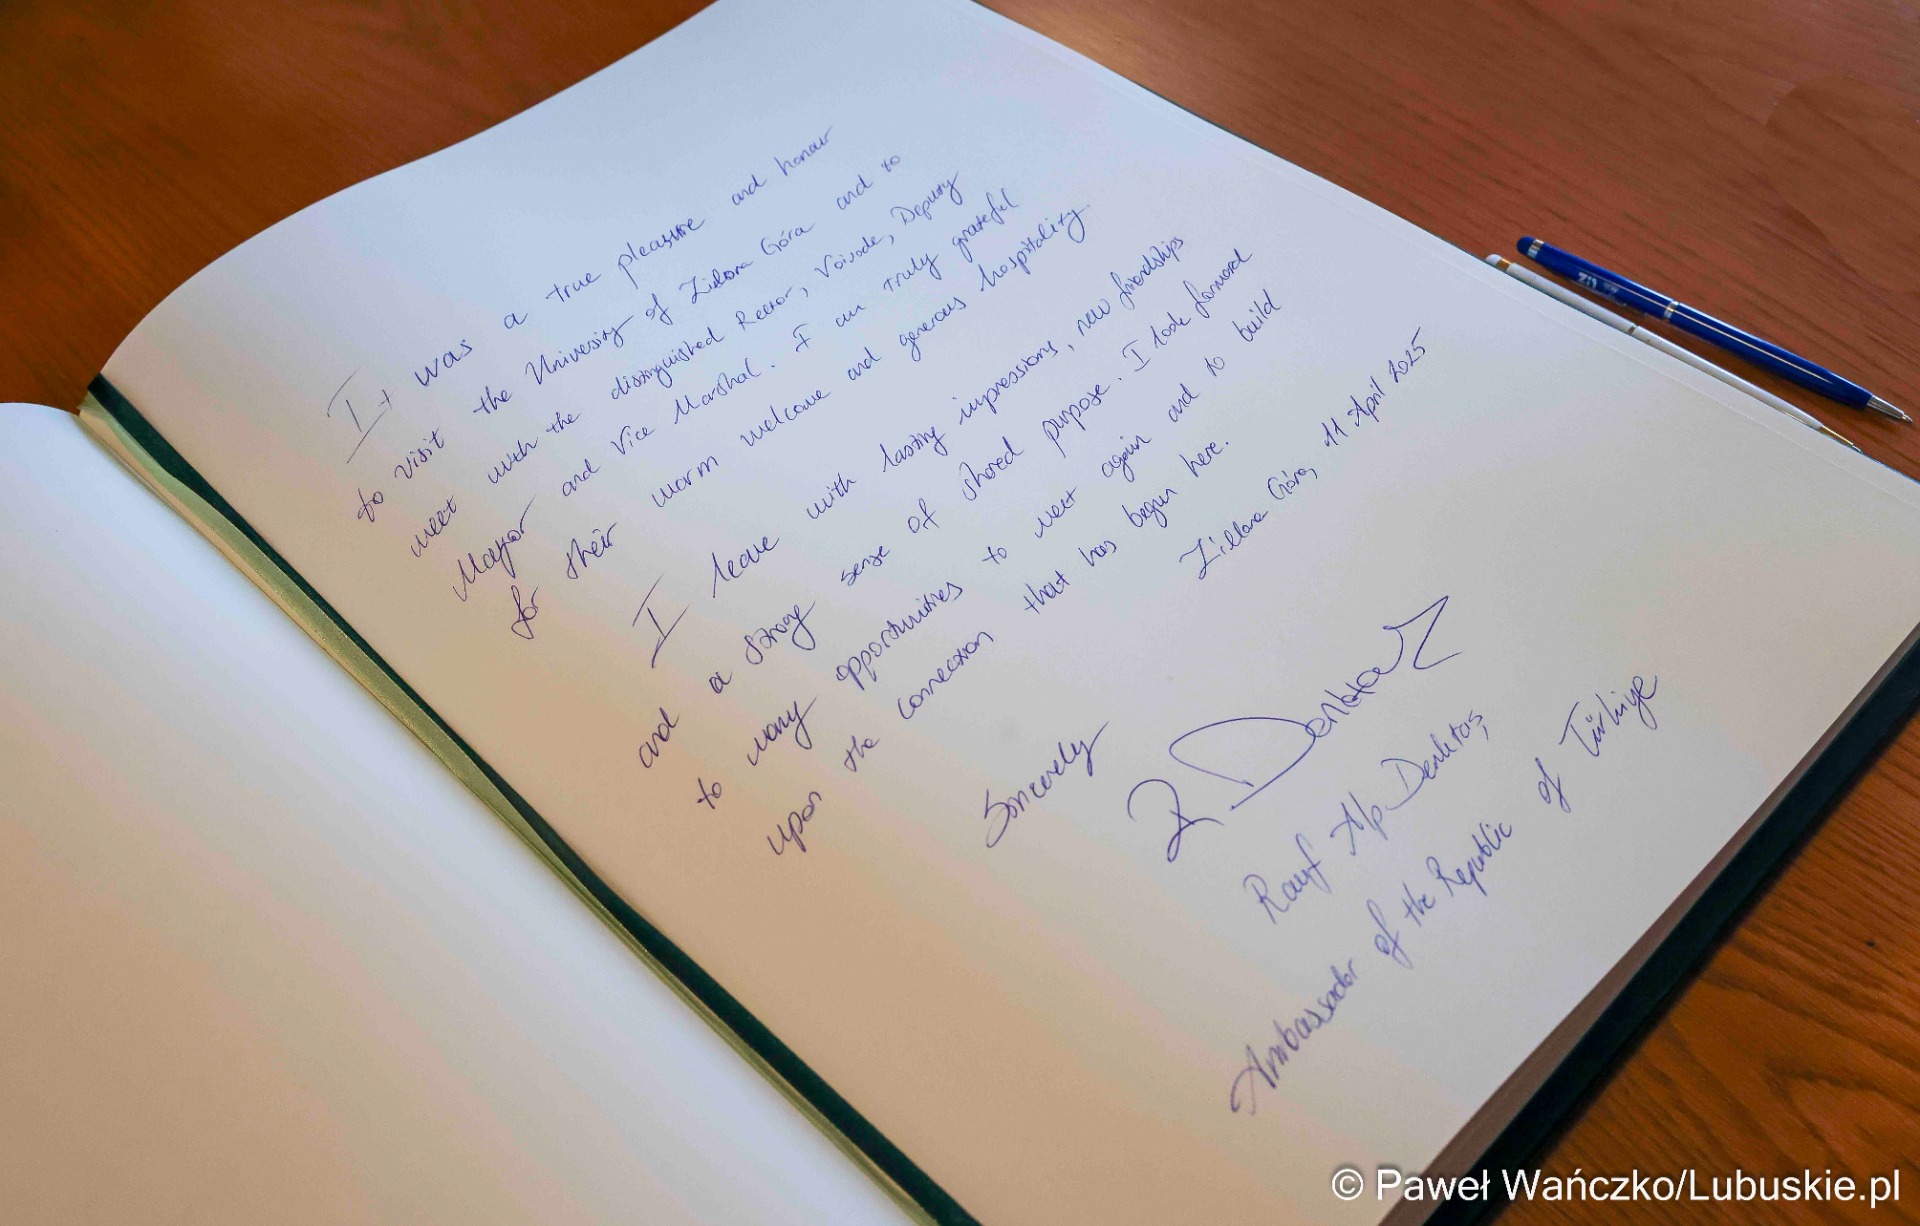 It was a true pleasure and honour
to visit the University of Zielona Góra and to
meet with the distinguished Rector, Voivode, Deputy
Mayor and Vice Marshal. I am truly grateful
for their warm welcome and generous hospitality.
I leave with lasting impressions, new friendships
and a strong sense of shared purpose. I look forward
to many opportunities to meet again and to build
upon the connection that has begun here.
Zielona Góra, 11 April 2025
Sincerely
R Denktaş
Rauf Alp Denktaş
Ambassador of the Republic of Türkiye
© Paweł Wańczko/Lubuskie.pl